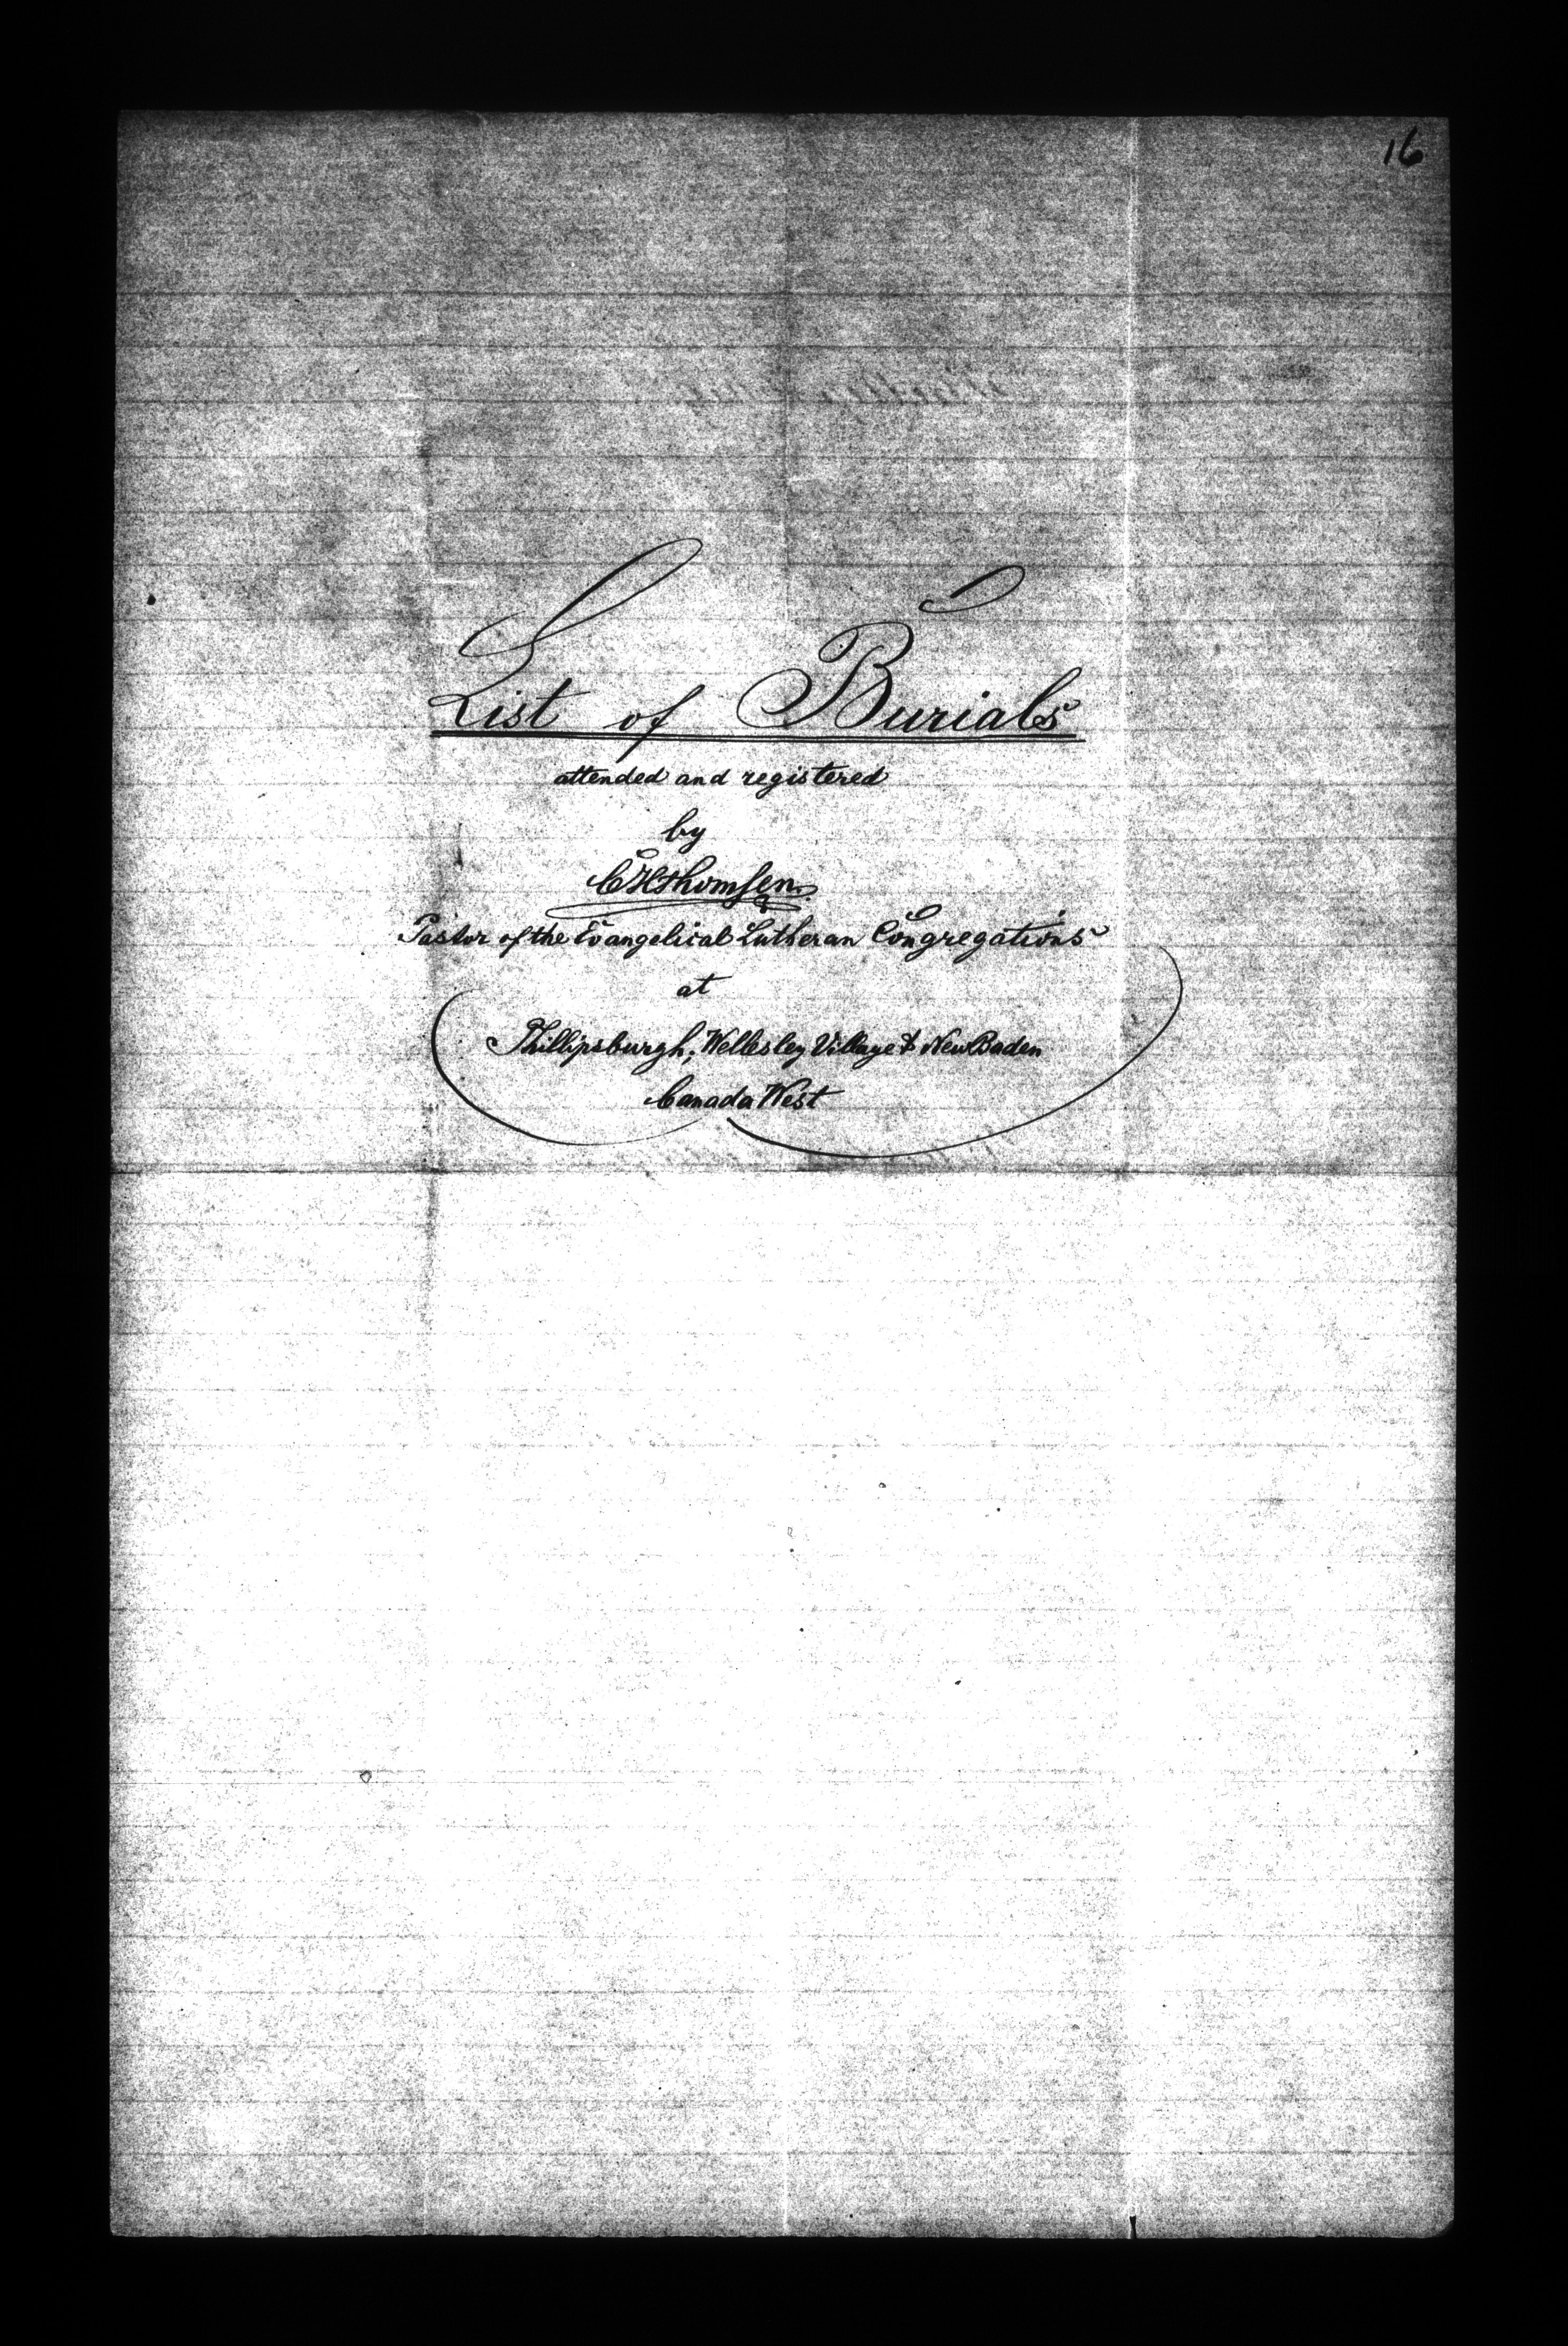 16
List of Burials
attended and registered
by
CHThomsen
Pastor of the Evangelical Lutheran Congregations
at
Phillipsburgh, Wellesley Village & New Baden
Canada West